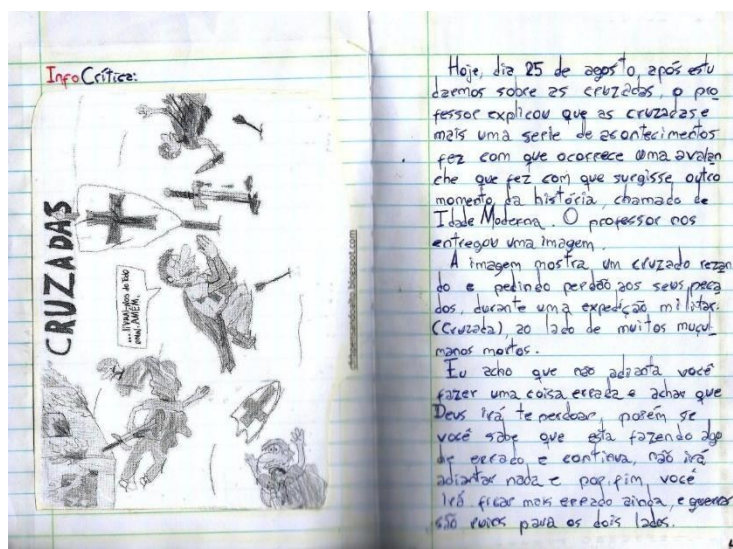 InfoCrítica:
CRUZADAS
... LIVRAI-NOS DO TODO
O MAL. AMÉM.
Hoje, dia 25 de agosto, após estu
darmos sobre as cruzadas, o pro
fessor explicou que as cruzadas e
mais uma serie de acontecimentos
fez com que ocorrece uma avalan
che que fez com que surgisse outro
momento da história, chamado de
Idade Moderna. O professor nos
entregou uma imagem.
A imagem mostra um cruzado rezan
do e pedindo perdão aos seus peca
dos, durante uma expedição militar.
(Cruzada), ao lado de muitos muçul
manos mortos.
Eu acho que não adianta você
fazer uma coisa errada e achar que
Deus irá te perdoar, porém se
você sabe que esta fazendo algo
de errado e continua, não irá
adiantar nada e por fim, você
irá ficar mais errado ainda, e guerras
são ruins para os dois lados.